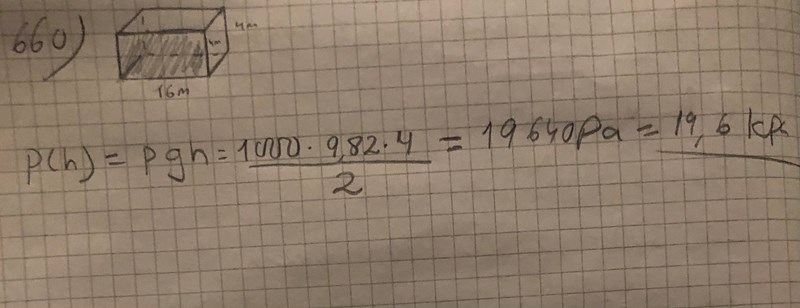 660)
4m
16m
p(h) = ρgh = 1000 · 9,82 · 4 / 2 = 19640Pa = 19,6 kPa